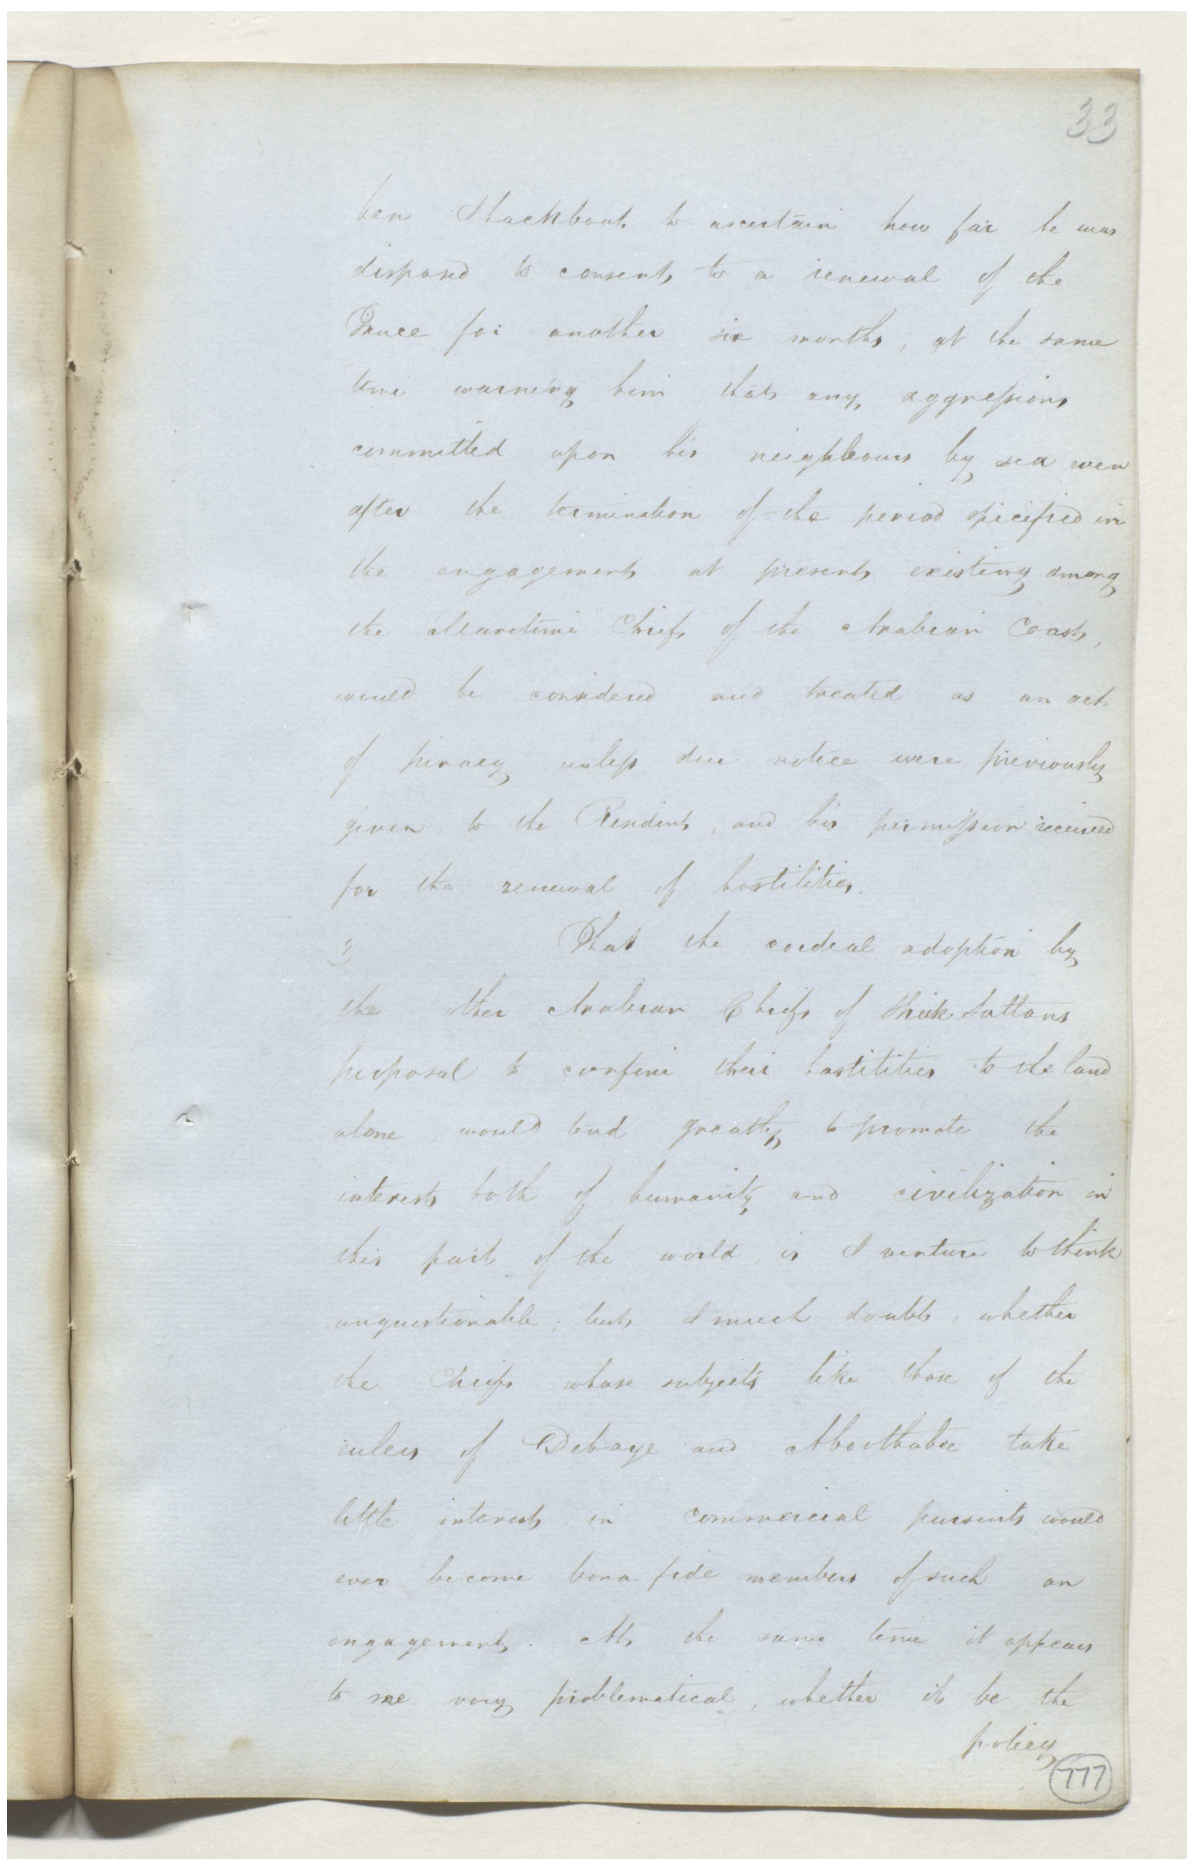 33
ben Shackboot to ascertain how far he was
disposed to consent to a renewal of the
Truce for another six months, at the same
time warning him that any aggressions
committed upon his neighbours by sea even
after the termination of the period specified in
the engagement at present existing among
the Maritime Chiefs of the Arabian Coast,
would be considered and treated as an act
of piracy unless due notice were previously
given to the Resident, and his permission received
for the renewal of hostilities.
3 That the cordial adoption by
the other Arabian Chiefs of Shiek Sultans
proposal to confine their hostilities to the land
alone would tend greatly to promote the
interests both of humanity and civilization in
this part of the world, is I venture to think
unquestionable; but I much doubt, whether
the Chiefs whose subjects like those of the
rulers of Debaye and Aboothabee take
little interest in commercial pursuits would
ever become bona fide members of such an
engagement. At the same time it appears
to me very problematical, whether it be the
policy
777